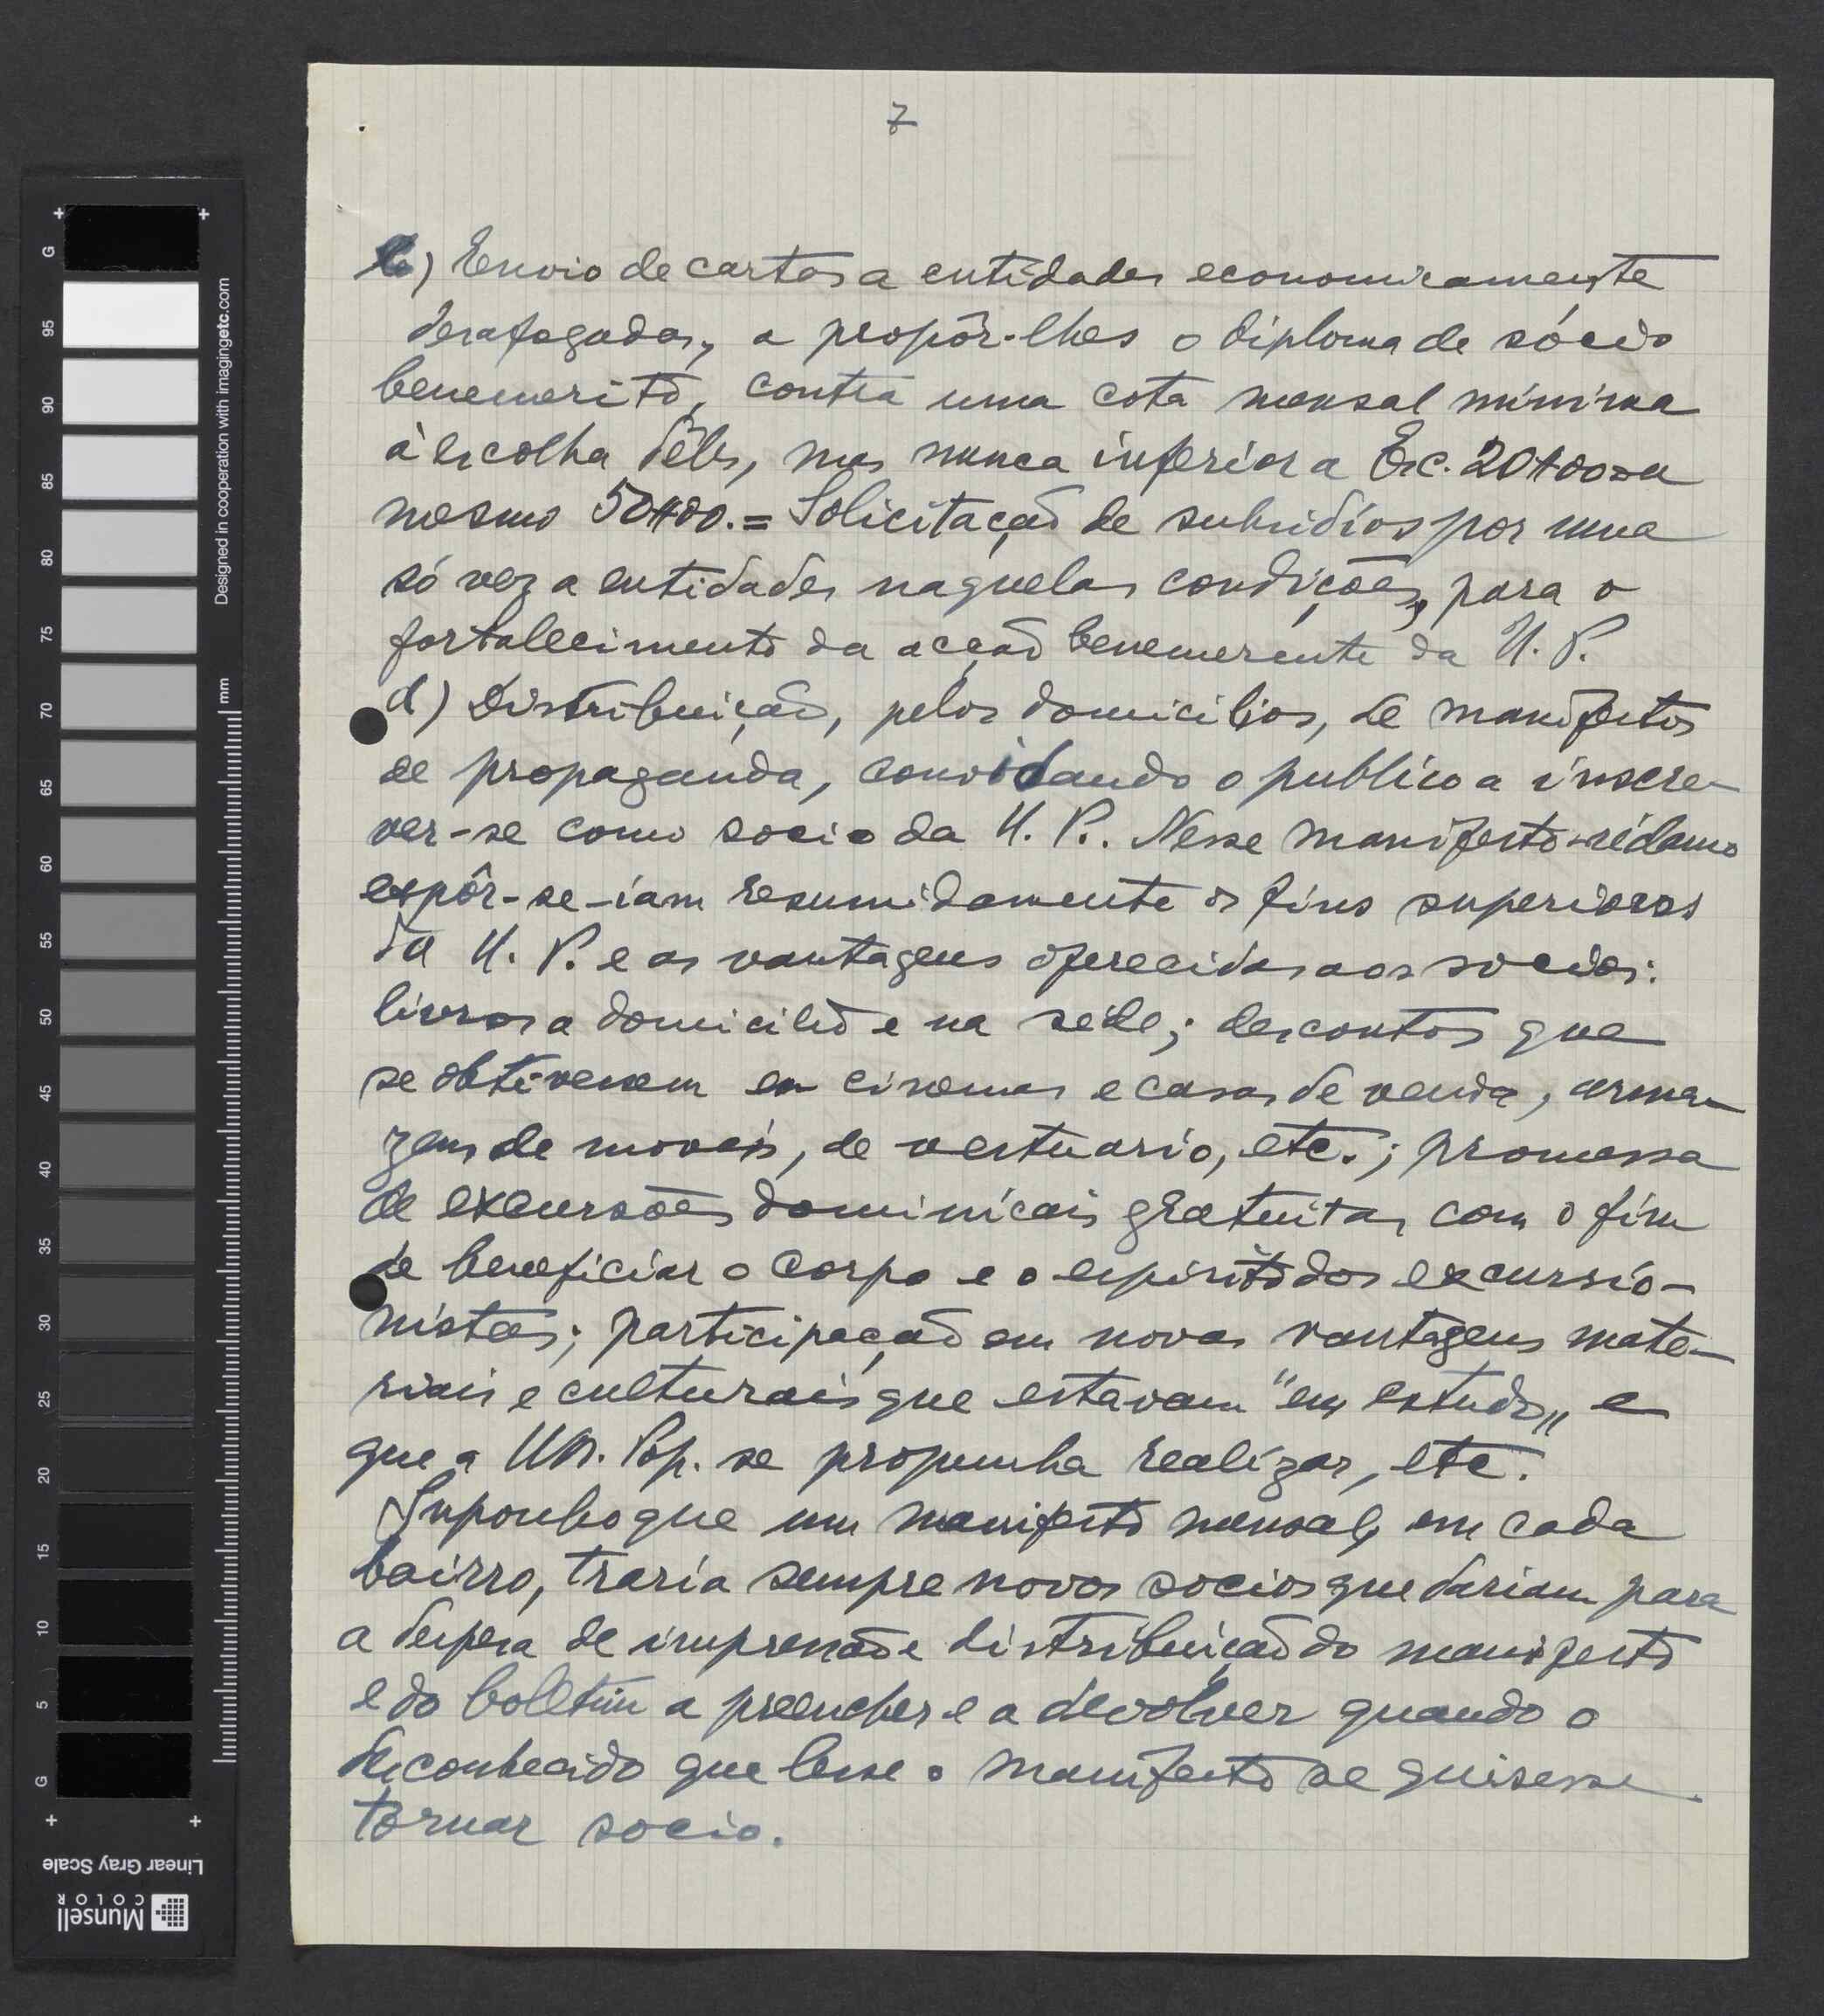 7
b) Envio de cartas a entidades economicamente
desafogadas, a propôr-lhes o diploma de sócio
benemerito, contra uma cota mensal minima
à escolha dêles, mas nunca inferior a Esc. 20$00 ou
mesmo 50$00. = Solicitação de subsidios por uma
só vez a entidades naquelas condições, para o
fortalecimento da acção benemerente da U. P.
d) Distribuição, pelos domicilios, de manifestos
de propaganda, convidando o publico a inscre-
ver-se como socio da U. P. Nesse manifesto-réclamo
expôr-se-iam resumidamente os fins superiores
da U. P. e as vantagens oferecidas aos socios:
livros a domicilio e na séde; descontos que
se obtivessem em cinemas e casas de venda, arma-
zens de moveis, de vestuario, etc.; promessa
de excursões dominicais gratuitas, com o fim
de beneficiar o corpo e o espirito dos excursio-
nistas; participação em novas vantagens mate-
riais e culturais que estavam "em estudo" e
que a Un. Pop. se propunha realizar, etc.
Suponho que um manifesto mensal, em cada
bairro, traria sempre novos socios que dariam para
a despesa de impressão e distribuição do manifesto
e do boletim a preencher e a devolver quando o
desconhecido que lesse o manifesto se quisesse
tornar socio.
G
95
90
85
80
75
70
65
60
55
50
45
40
35
30
25
20
15
10
5
G
mm
Designed in cooperation with imagingetc.com
Linear Gray Scale
Munsell
COLOR